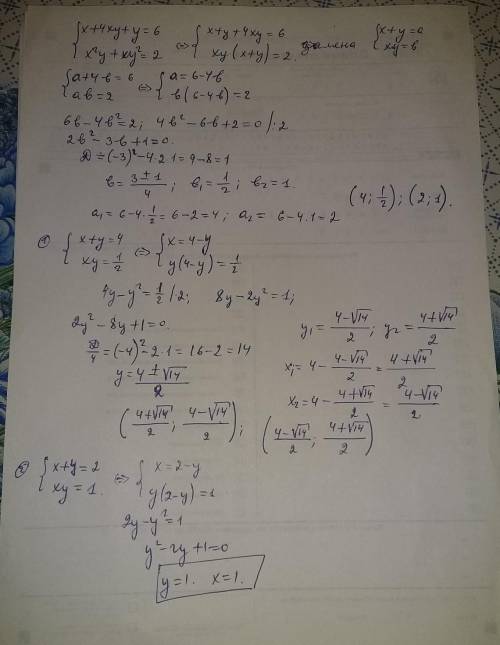 {x+4xy+y=6 ⇔ {x+y+4xy=6 замена {x+y=a
{x²y+xy²=2 {xy(x+y)=2. {xy=b
{a+4b=6 ⇔ {a=6-4b
{ab=2 {b(6-4b)=2
6b-4b²=2; 4b²-6b+2=0 /:2
2b²-3b+1=0.
D=(-3)²-4·2·1=9-8=1
b=(3±1)/4; b₁=1/2; b₂=1.
a₁=6-4·1/2=6-2=4; a₂=6-4·1=2 (4; 1/2); (2; 1).
① {x+y=4 ⇔ {x=4-y
{xy=1/2 {y(4-y)=1/2
4y-y²=1/2 /2; 8y-2y²=1;
2y²-8y+1=0.
D/4=(-4)²-2·1=16-2=14
y=(4±√14)/2
y₁=(4-√14)/2; y₂=(4+√14)/2
x₁=4-(4-√14)/2=(4+√14)/2
x₂=4-(4+√14)/2=(4-√14)/2
((4+√14)/2; (4-√14)/2); ((4-√14)/2; (4+√14)/2)
② {x+y=2 ⇔ {x=2-y
{xy=1. {y(2-y)=1
2y-y²=1
y²-2y+1=0
y=1. x=1.